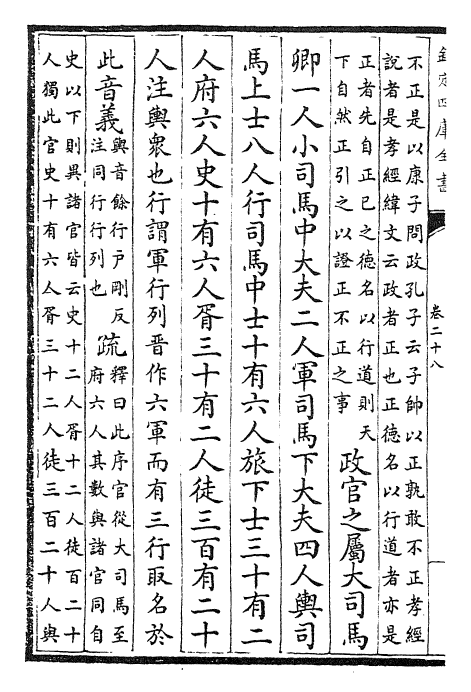 欽定四庫全書
卷二十八
不正是以康子問政孔子云子帥以正孰敢不正孝經
說者是孝經緯文云政者正也正德名以行道者亦是
正者先自正己之德名以行道則天
下自然正引之以證正不正之事
政官之屬大司馬
卿一人小司馬中大夫二人軍司馬下大夫四人輿司
馬上士八人行司馬中士十有六人旅下士三十有二
人府六人史十有六人胥三十有二人徒三百有二十
人注輿眾也行謂軍行列晉作六軍而有三行取名於
此音義
輿音餘行戶剛反
注同行行列也
疏
釋曰此序官從大司馬至
府六人其數與諸官同自
史以下則異諸官皆云史十二人胥十二人徒百二十
人獨此官史十有六人胥三十二人徒三百二十人與